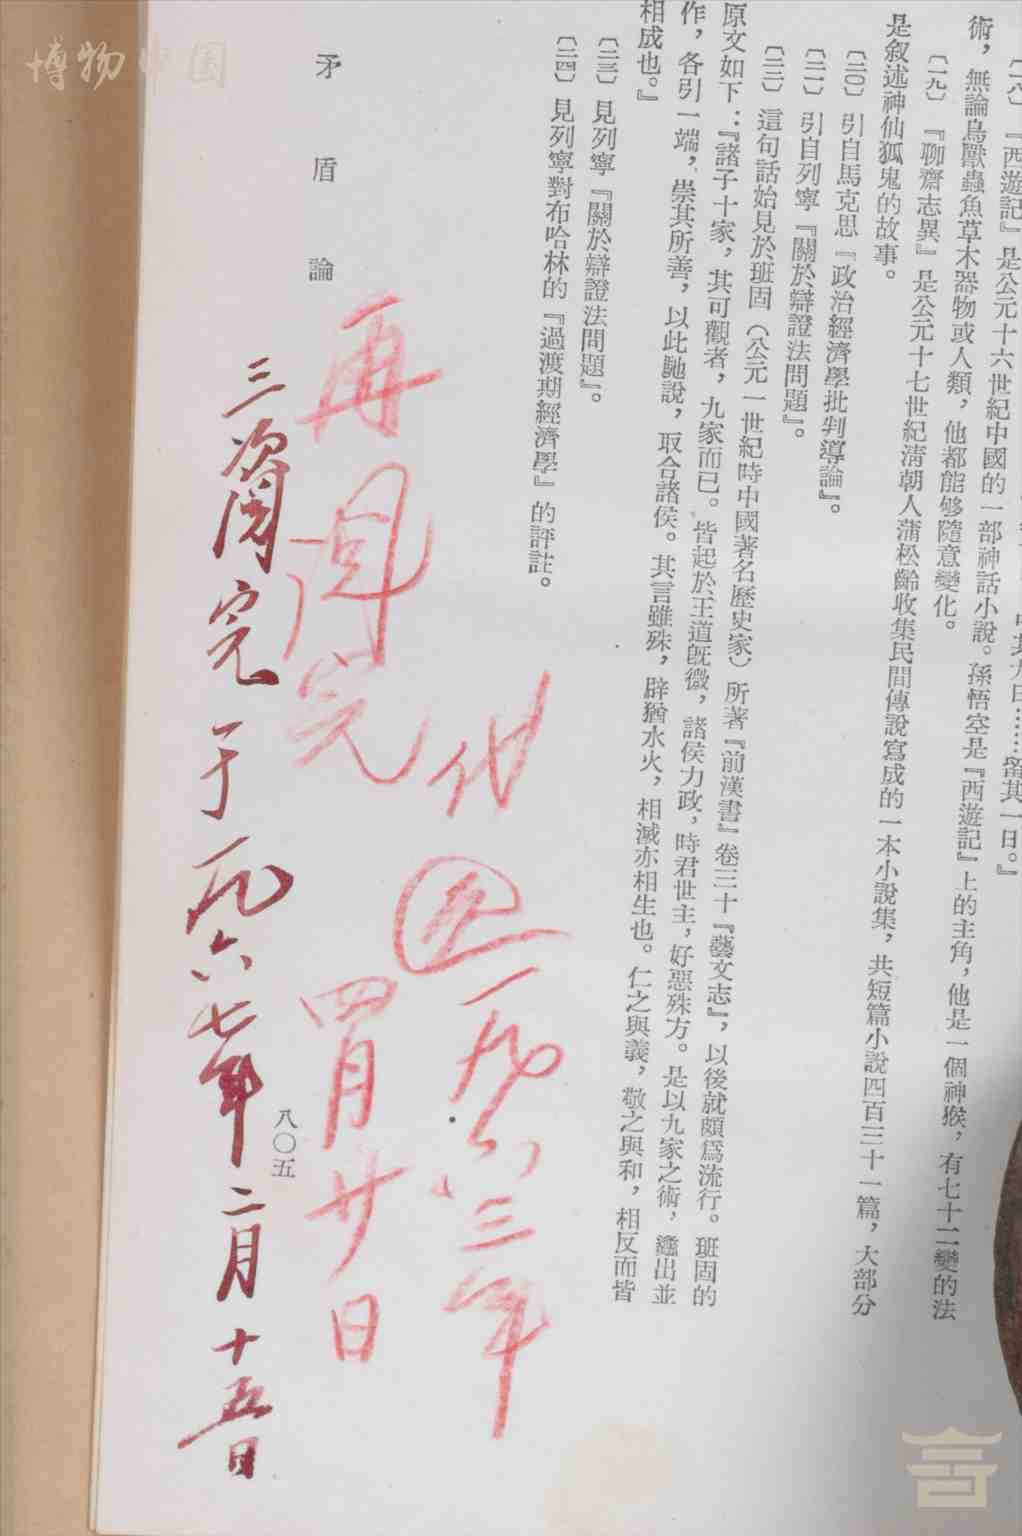 〔一八〕『西遊記』是公元十六世紀中國的一部神話小說。孫悟空是『西遊記』上的主角，他是一個神猴，有七十二變的法
術，無論鳥獸蟲魚草木器物或人類，他都能够隨意變化。
〔一九〕『聊齋志異』是公元十七世紀清朝人蒲松齡收集民間傳說寫成的一本小說集，共短篇小說四百三十一篇，大部分
是叙述神仙狐鬼的故事。
〔二〇〕引自馬克思『政治經濟學批判導論』。
〔二一〕引自列寧『關於辯證法問題』。
〔二二〕這句話始見於班固（公元一世紀時中國著名歷史家）所著『前漢書』卷三十『藝文志』，以後就頗爲流行。班固的
原文如下：『諸子十家，其可觀者，九家而已。皆起於王道既微，諸侯力政，時君世主，好惡殊方。是以九家之術，蠭出並
作，各引一端，崇其所善，以此馳說，取合諸侯。其言雖殊，辟猶水火，相滅亦相生也。仁之與義，敬之與和，相反而皆
相成也。』
〔二三〕見列寧『關於辯證法問題』。
〔二四〕見列寧對布哈林的『過渡期經濟學』的評註。
矛盾論
八〇五
一九六三年
再閱完
四月廿日
三次閱完于一九六七年二月十五日
博物中国